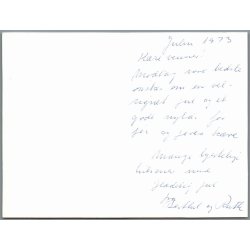 Julen 1973
Kære venner!
Modtag vore bedste
ønsker om en vel-
signet jul og et
godt nytår for
jer og jeres kære
Mange hjertelige
hilsener med
glædelig jul
og Ruth